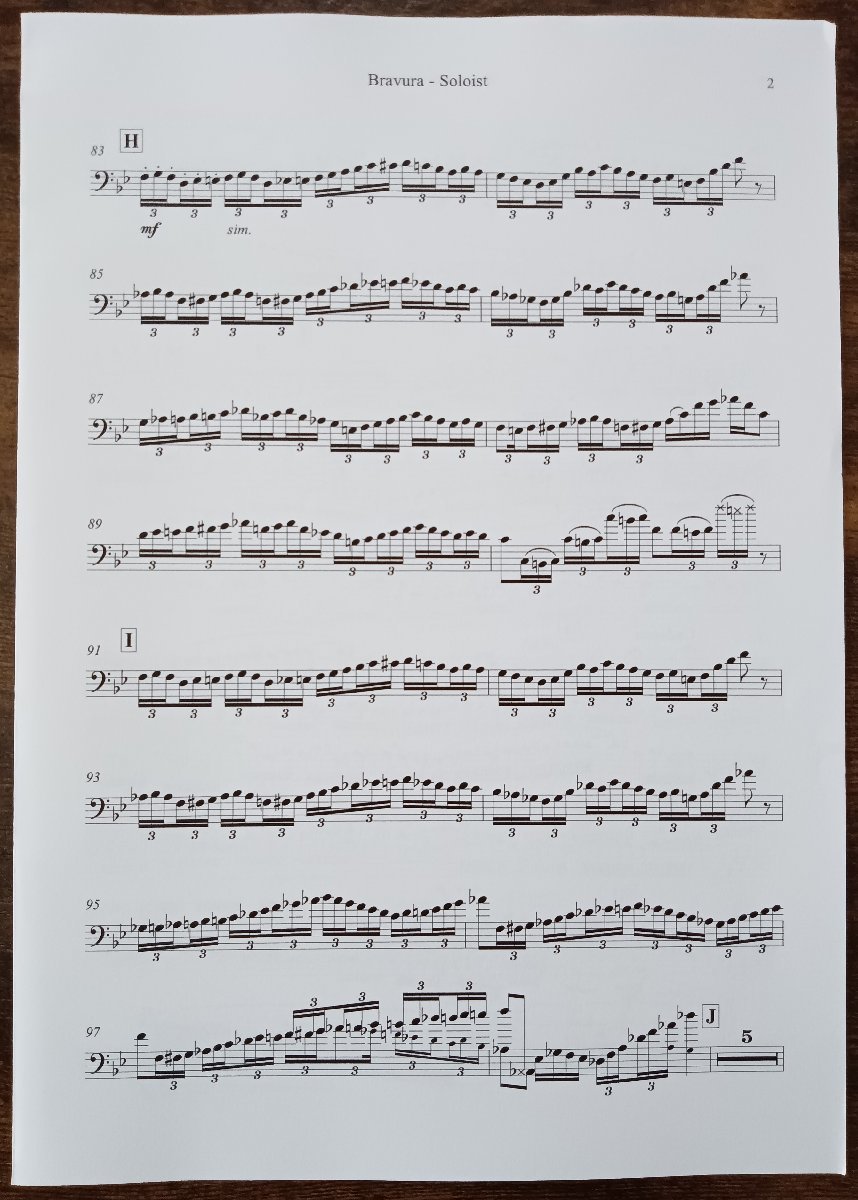 Bravura - Soloist
2
H
83
3 3 3 3 3 3 3 3 3 3 3 3 3 3
mf sim.
85
3 3 3 3 3 3 3 3 3 3 3 3 3 3
87
3 3 3 3 3 3 3 3 3 3 3 3
89
3 3 3 3 3 3 3 3 3 3 3 3
I
91
3 3 3 3 3 3 3 3 3 3 3 3 3 3
93
3 3 3 3 3 3 3 3 3 3 3 3 3 3
95
3 3 3 3 3 3 3 3 3 3 3 3 3 3 3
3 3 3 3
J
97
5
3 3 3 3 3 3 3 3